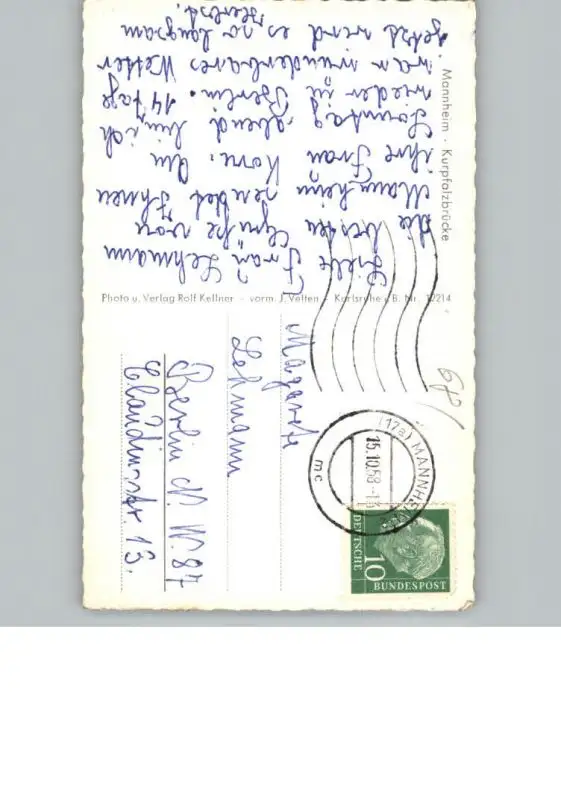 Mannheim · Kurpfalzbrücke
Liebe Frau Lehmann
die besten Grüße von
Mannheim sendet Ihnen
ihre Frau Korn. Am
Sonntag abend bin ich
wieder in Berlin. 14 Tage
war wunderbares Wetter
jetzt wird es so langsam
Herbst.
Photo u. Verlag Rolf Kellner - vorm. J. Velten - Karlsruhe i. B. Nr. 12214
Magarete
Lehmann
Berlin N. W. 87
Claudiusstr. 13.
(17a) MANNHEIM
15.10.58-13
mc
DEUTSCHE
BUNDESPOST
10